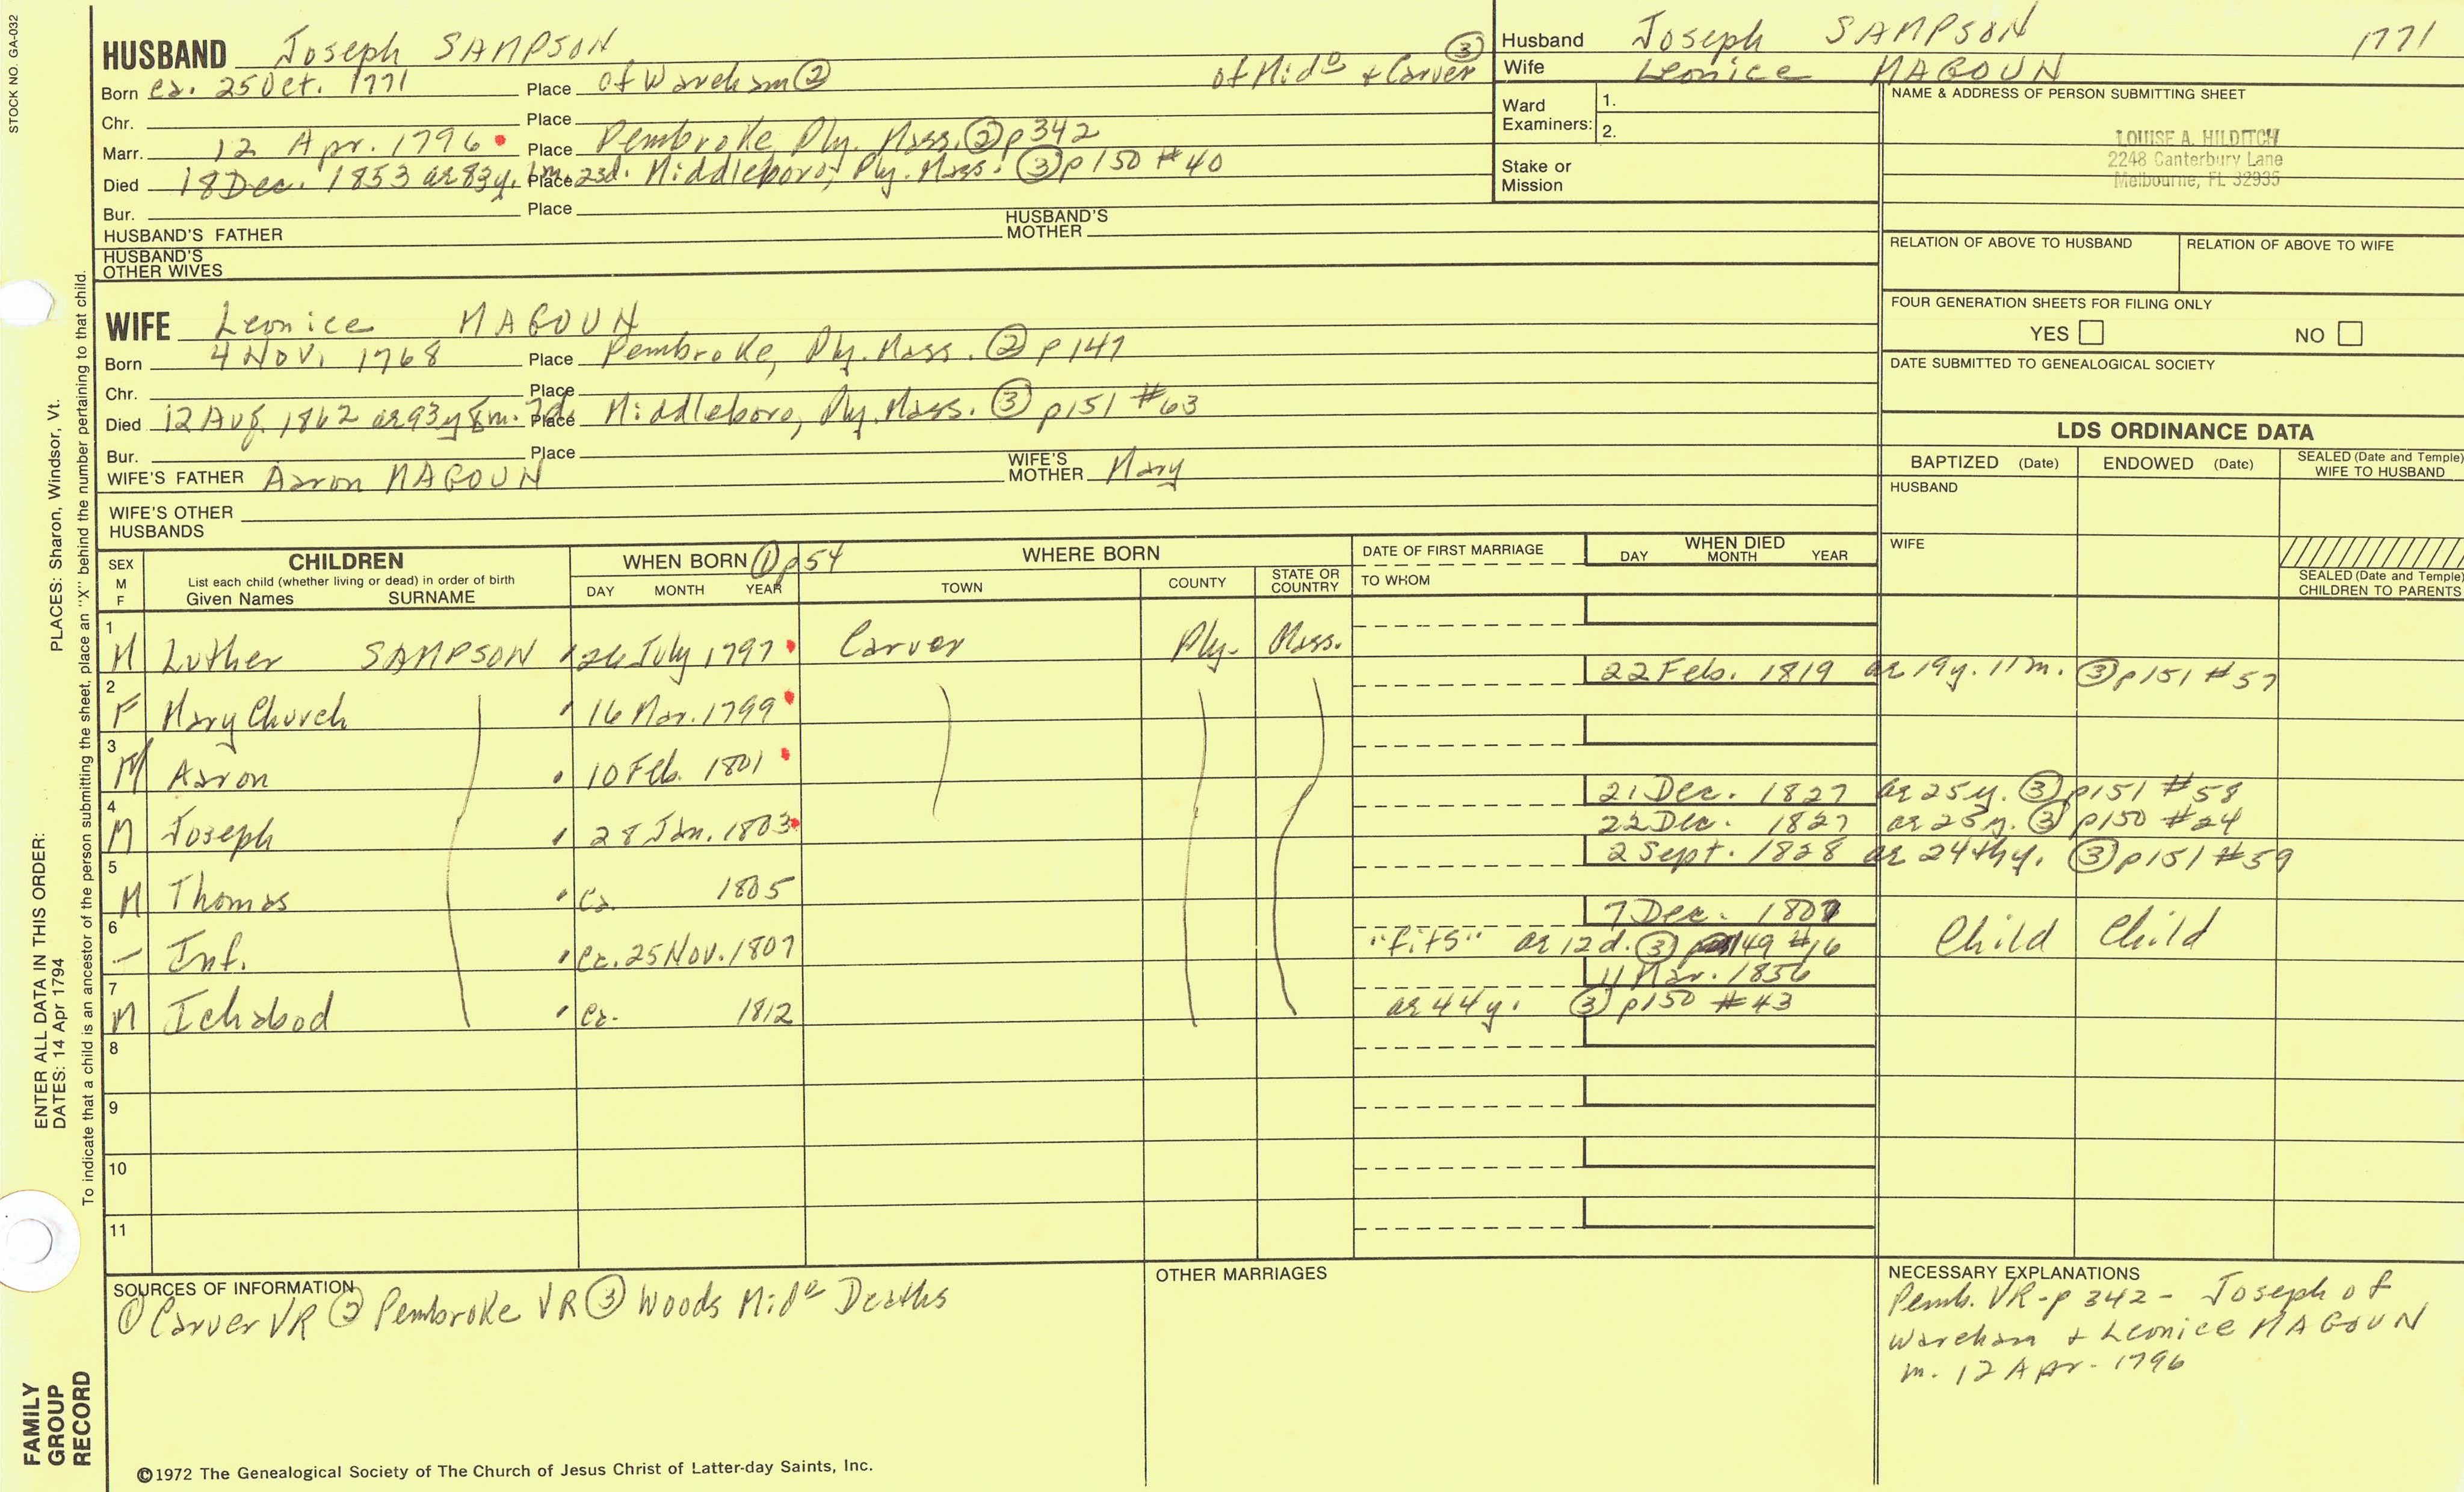 STOCK NO. GA-032
HUSBAND Joseph SAMPSON
Born ca. 25 Oct. 1771 Place of Wareham ② of Mido + Carver ③
Chr. Place
Marr. 12 Apr. 1796 Place Pembroke, Ply. Mass. ② p 342
Died 18 Dec. 1853 ae 83y. 1m. 23d. Place Middleboro, Ply. Mass. ③ p 150 #40
Bur. Place
HUSBAND'S FATHER HUSBAND'S MOTHER
HUSBAND'S OTHER WIVES
Husband Joseph SAMPSON 1771
Wife Leonice MAGOUN
Ward Examiners: 1.
2.
Stake or Mission
NAME & ADDRESS OF PERSON SUBMITTING SHEET
LOUISE A. HILDITCH
2248 Canterbury Lane
Melbourne, FL 32935
RELATION OF ABOVE TO HUSBAND RELATION OF ABOVE TO WIFE
FOUR GENERATION SHEETS FOR FILING ONLY
YES NO
DATE SUBMITTED TO GENEALOGICAL SOCIETY
WIFE Leonice MAGOUN
Born 4 Nov. 1768 Place Pembroke, Ply. Mass. ② p 147
Chr. Place
Died 12 Aug. 1862 ae 93y 8m. 7d. Place Middleboro, Ply. Mass. ③ p151 #63
Bur. Place
WIFE'S FATHER Aaron MAGOUN WIFE'S MOTHER Mary
WIFE'S OTHER HUSBANDS
LDS ORDINANCE DATA
BAPTIZED (Date) ENDOWED (Date) SEALED (Date and Temple) WIFE TO HUSBAND
HUSBAND
WIFE
SEALED (Date and Temple) CHILDREN TO PARENTS
SEX M F CHILDREN WHEN BORN ① p54 WHERE BORN DATE OF FIRST MARRIAGE WHEN DIED
List each child (whether living or dead) in order of birth
Given Names SURNAME DAY MONTH YEAR TOWN COUNTY STATE OR COUNTRY TO WHOM DAY MONTH YEAR
1 M Luther SAMPSON 26 July 1797 Carver Ply. Mass.
2 F Mary Church 16 Mar. 1799 22 Feb. 1819 ae 19y. 11m. ③ p151 #57
3 M Aaron 10 Feb. 1801
4 M Joseph 28 Jan. 1803 21 Dec. 1827 ae 25y. ③ p151 #58
22 Dec. 1827 ae 25y. ③ p150 #24
5 M Thomas ca. 1805 2 Sept. 1828 ae 24thy. ③ p151 #59
6 – Inf. ca. 25 Nov. 1807 7 Dec. 1807
"fits" ae 12d. ③ p149 #16 Child Child
7 M Ichabod ca. 1812 11 Mar. 1856
ae 44y. ③ p150 #43
8
9
10
11
SOURCES OF INFORMATION
① Carver VR ② Pembroke VR ③ Woods Mido Deaths
OTHER MARRIAGES
NECESSARY EXPLANATIONS
Pemb. VR - p 342 - Joseph of
Wareham + Leonice MAGOUN
m. 12 Apr. 1796
©1972 The Genealogical Society of The Church of Jesus Christ of Latter-day Saints, Inc.
ENTER ALL DATA IN THIS ORDER:
DATES: 14 Apr 1794 PLACES: Sharon, Windsor, Vt.
To indicate that a child is an ancestor of the person submitting the sheet, place an "X" behind the number pertaining to that child.
FAMILY GROUP RECORD